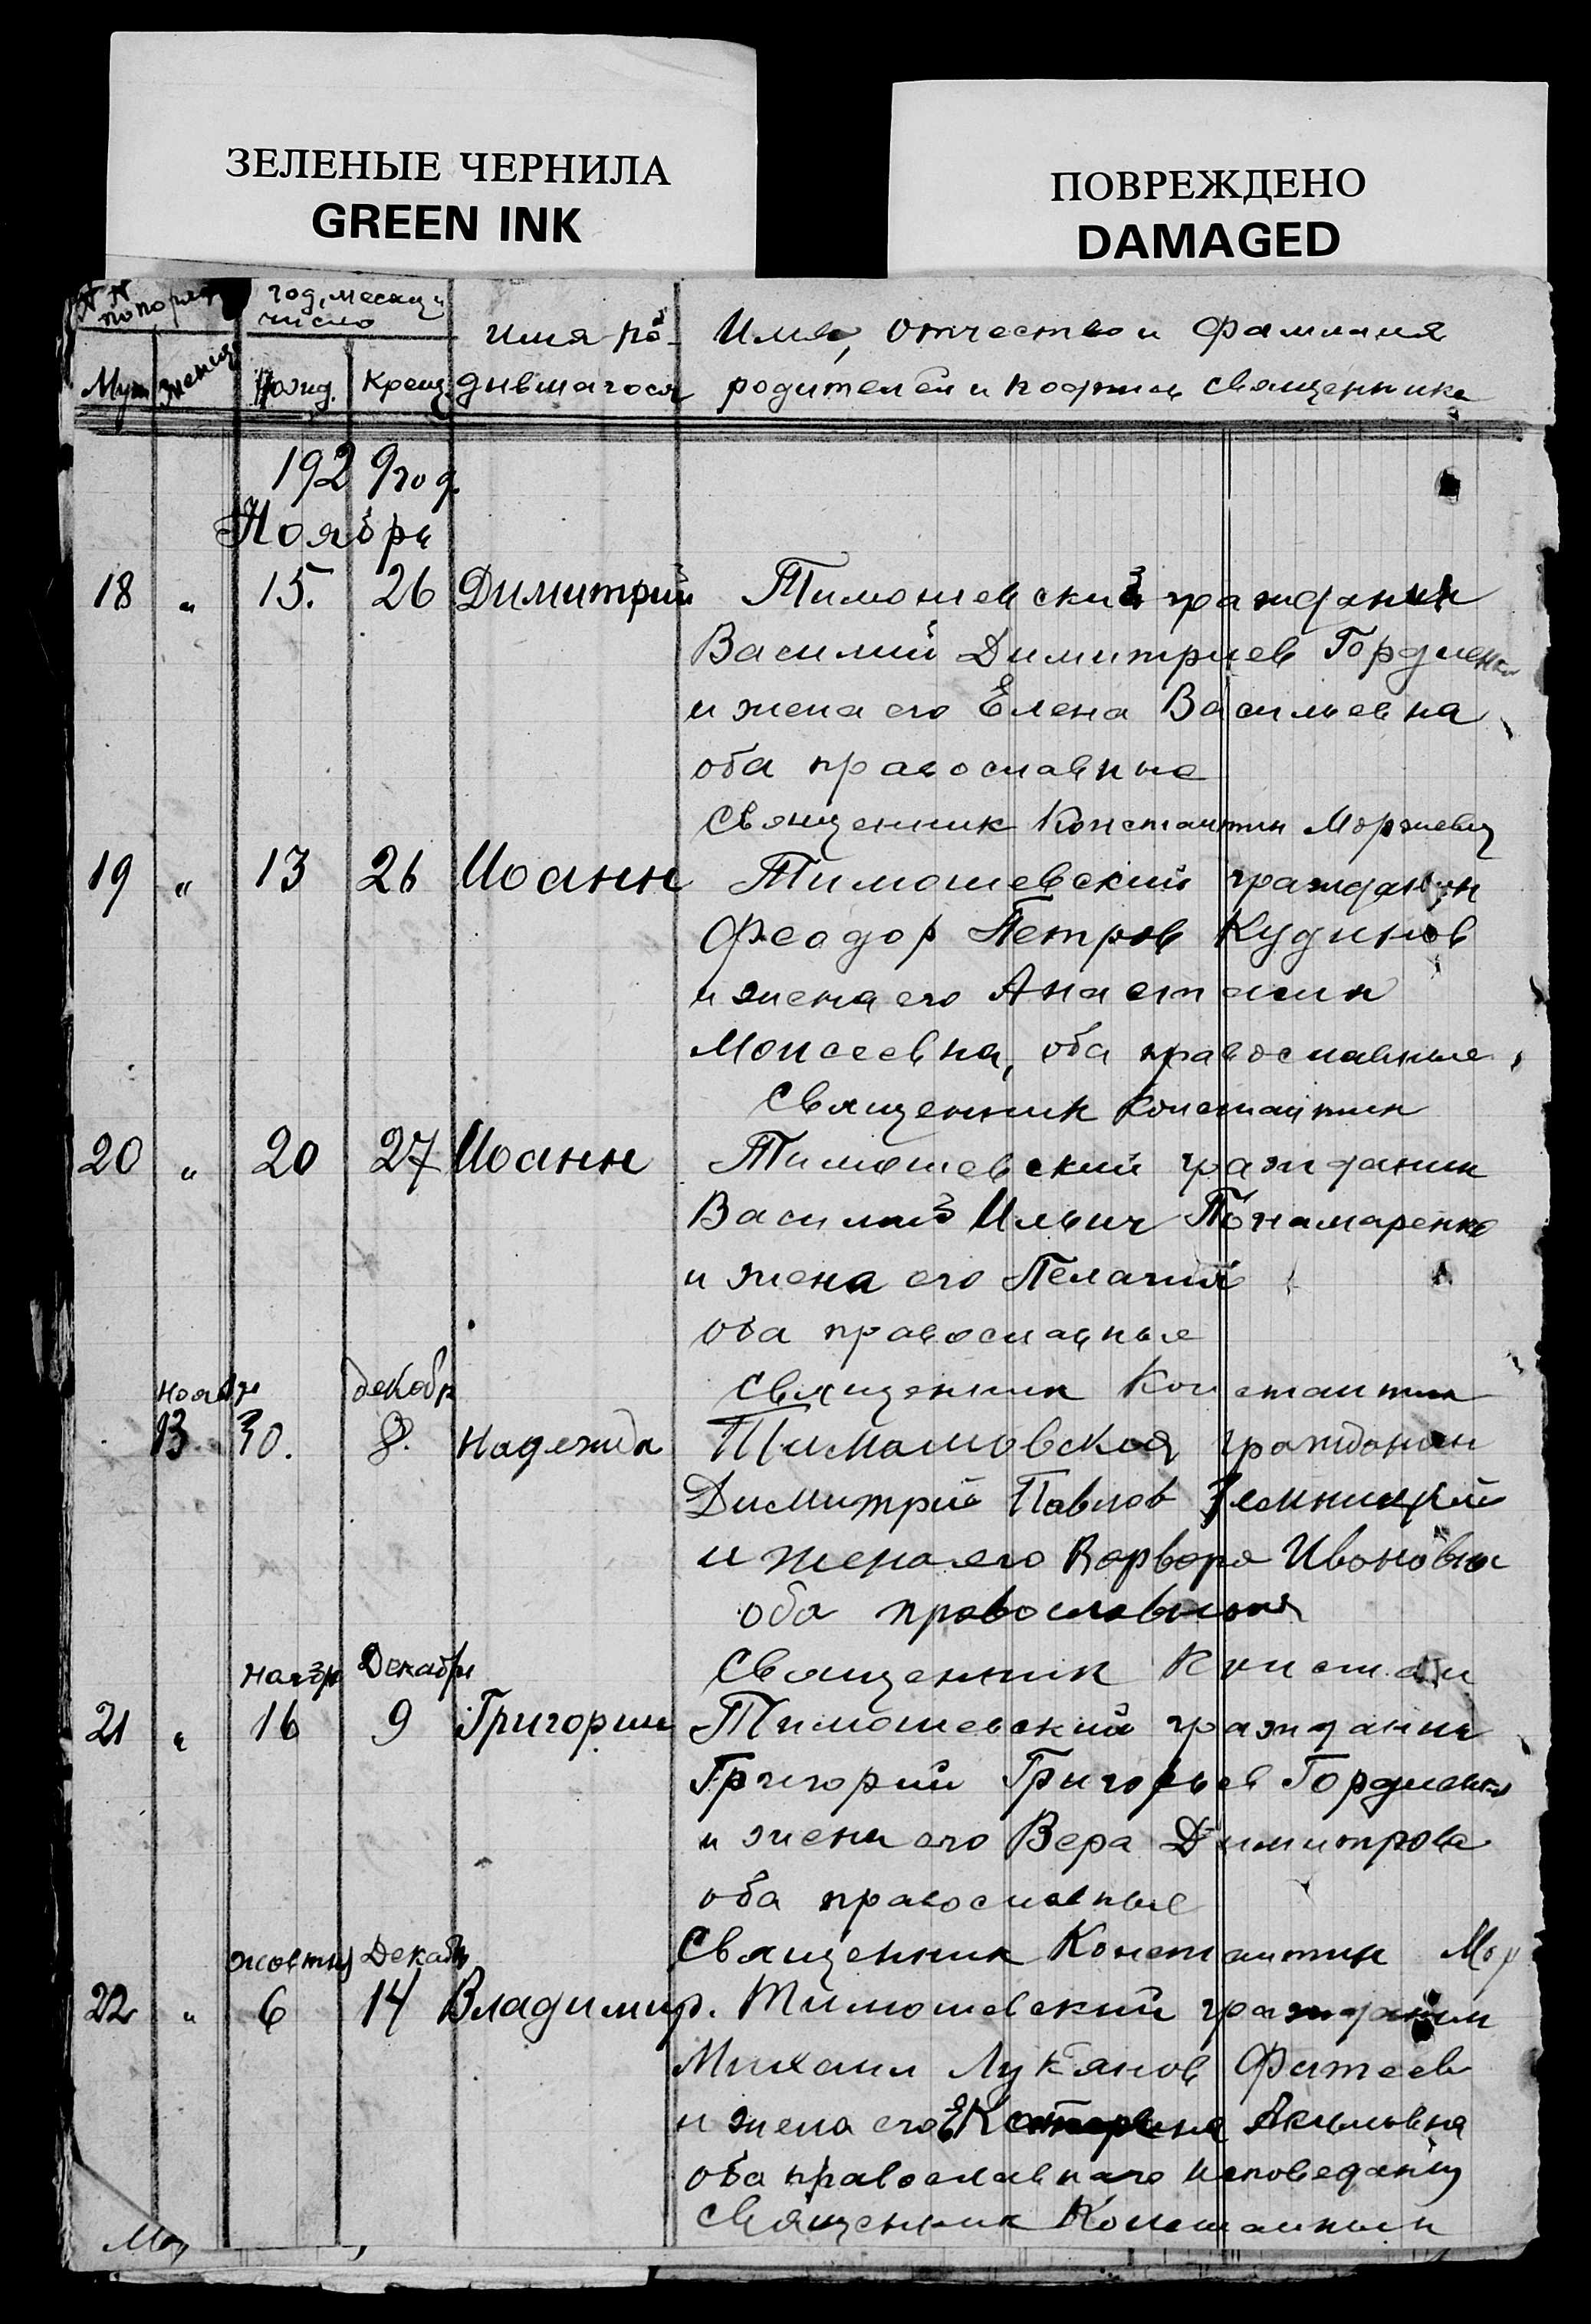 ЗЕЛЕНЫЕ ЧЕРНИЛА
GREEN INK
ПОВРЕЖДЕНО
DAMAGED
№ № по поряд
Муж Женск
год, месяц и число
Рожд. Крещ
Имя ро
дившагося
Имя, отчество и фамилия
родителей и подпись священника
1929 год
Ноябрь
18 " 15. 26 Димитрий Тимошевский гражданин
Василий Димитриев Гордиенко
и жена его Елена Васильевна
оба православные
Священник Константин
19 " 13 26 Иоанн Тимошевский гражданин
Феодор Петров Кудинов
и жена его Анастасия
Моисеевна, оба православные
Священник Константин
20 " 20 27 Иоанн Тимошевский гражданин
Василий Ильич Понамаренко
и жена его Пелагия
оба православные
Священник Константин
Ноябр декабр
13 30. 8. Надежда гражданин
Димитрий Павлов
и жена его Варвара Ивановна
оба православныя
Священник Констан
Ноябр Декабрь
21 " 16 9 Григорий Тимошевский гражданин
Григорий Григорьев Гордиенко
и жена его Вера Димитрова
оба православные
Священник Константин Мор
Декабрь
22 " 6 14 Владимир. Тимошевский гражданин
Михаил Лук'янов Фатеев
и жена его Екатерина Акимовна
оба православнаго исповедания
Священник Константин
Мор